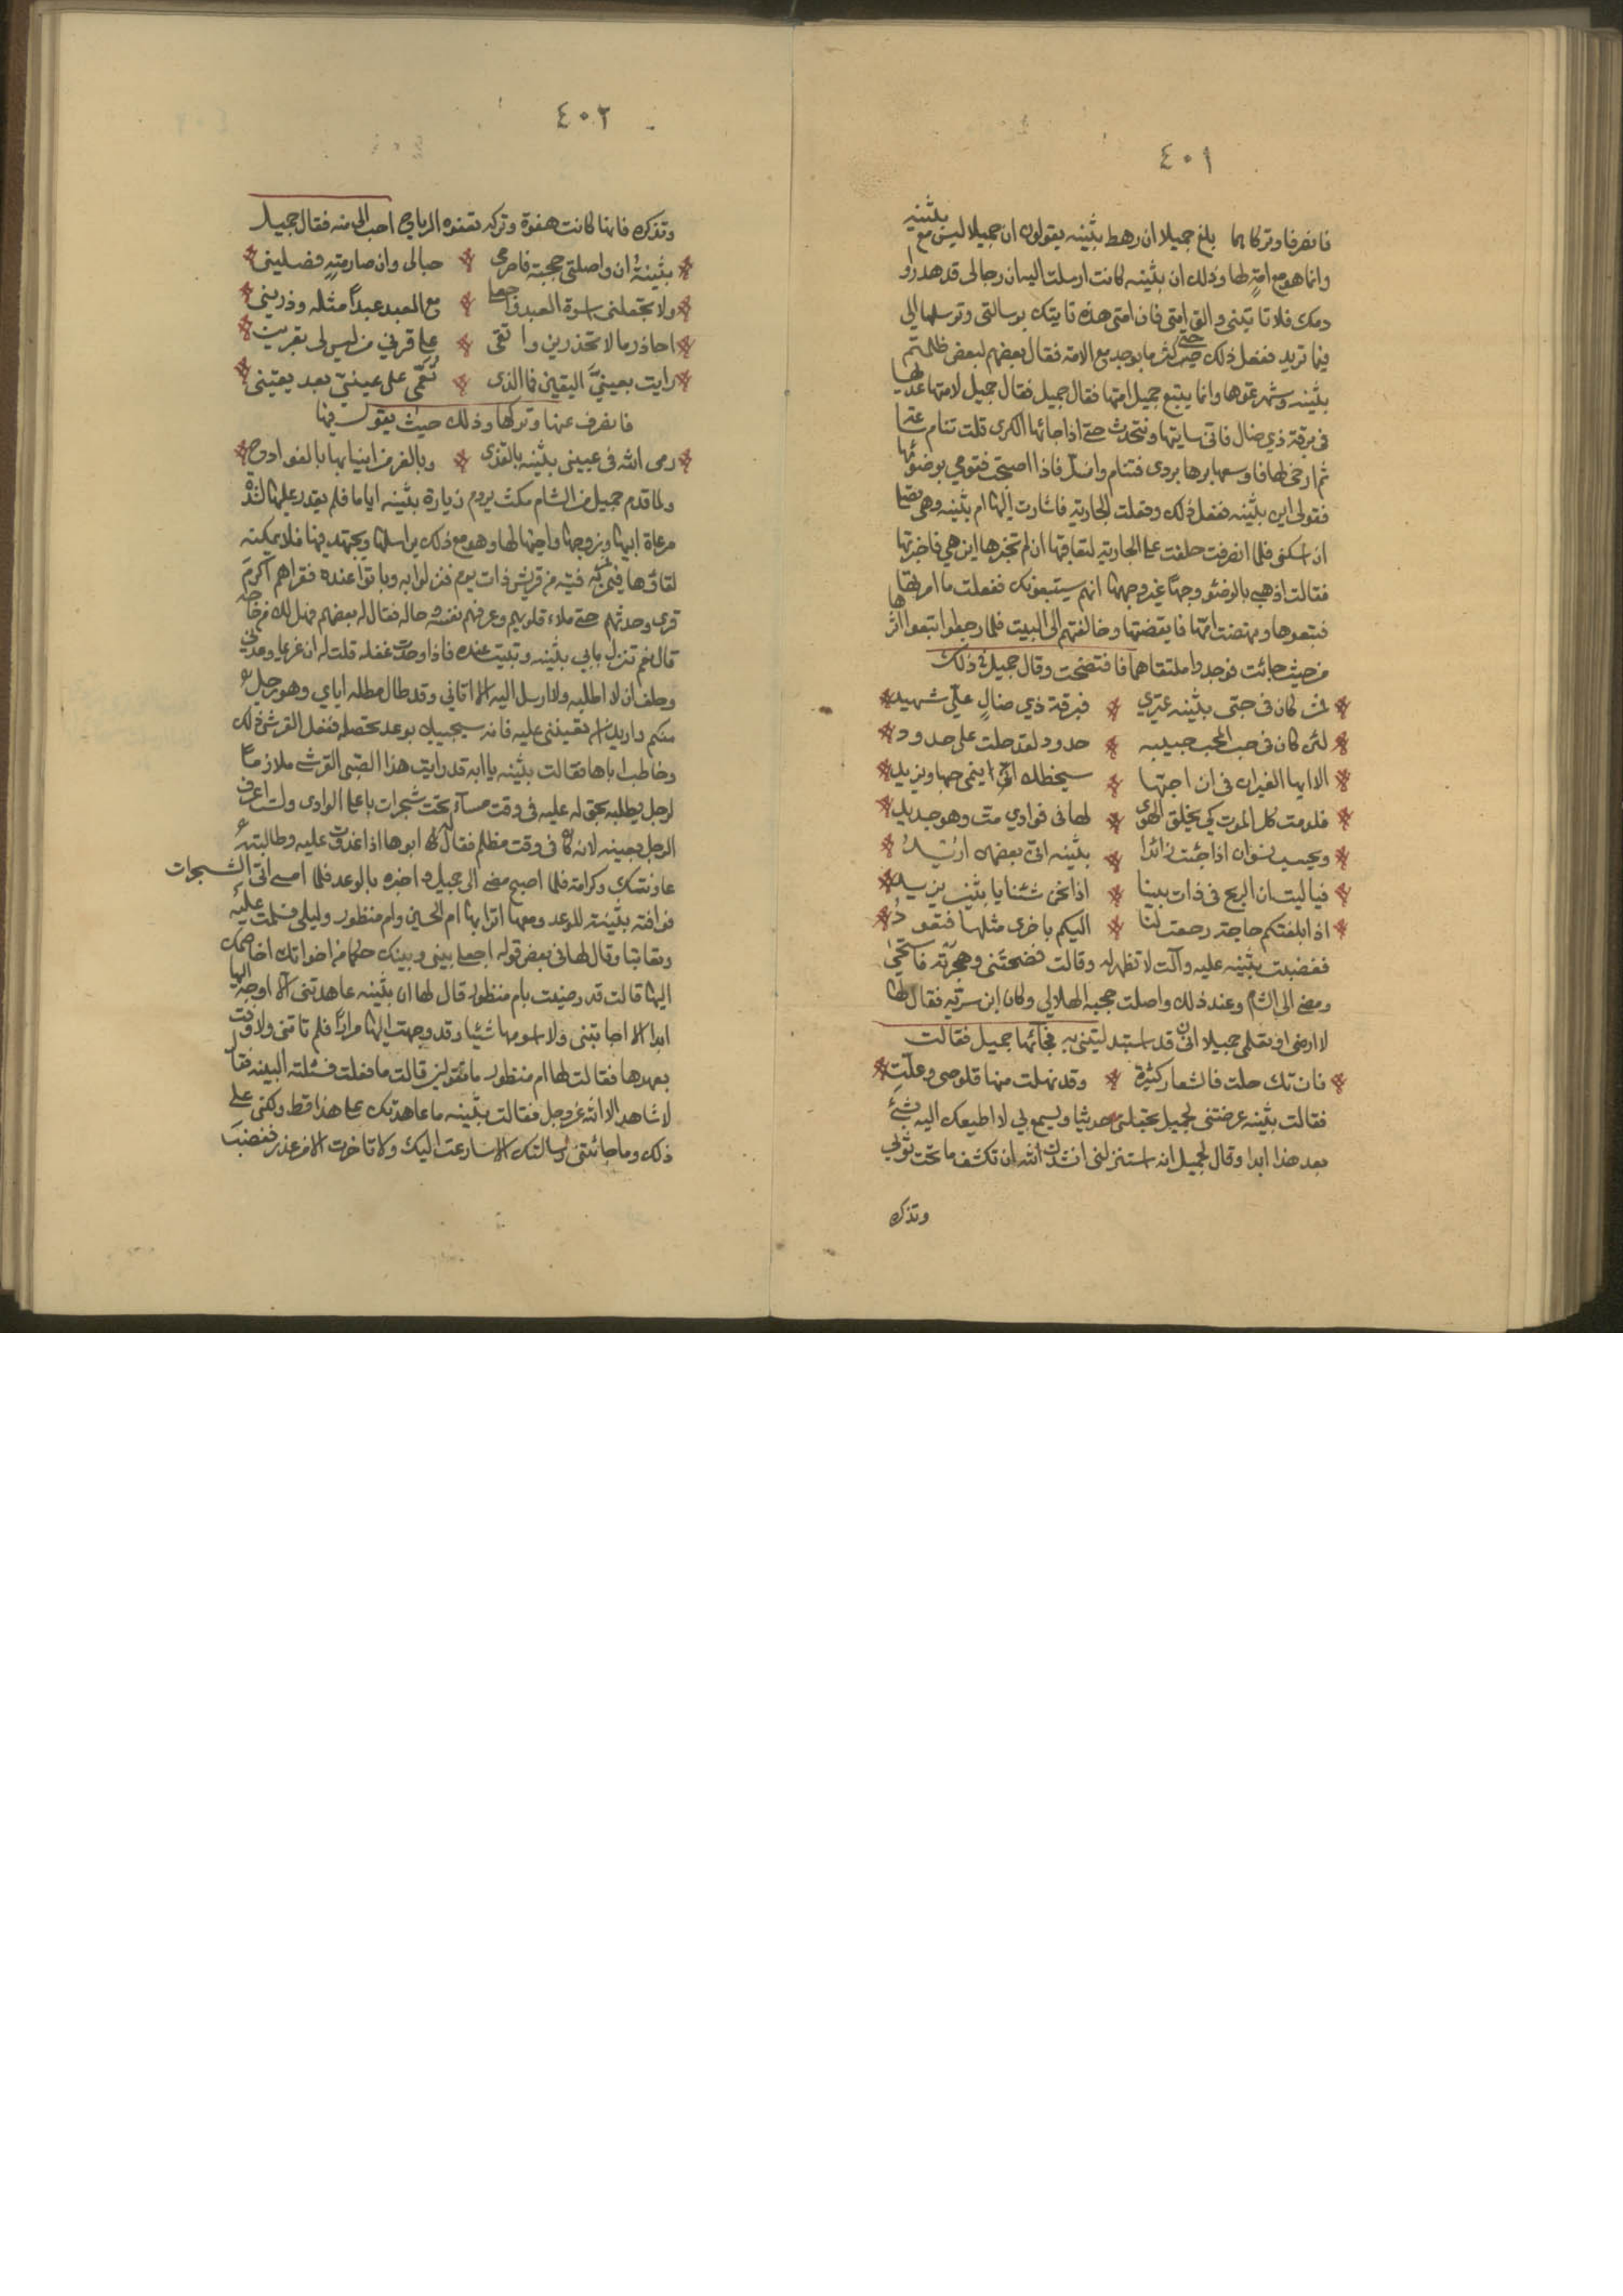 ٤٠١
فانصرفا وتركاهما بلغ جميلا ان رهط بثينه يقولون ان جميلا ليس مع بثينه
وانما هو مع امة لها وذلك ان بثينه كانت ارسلت اليه ان رجالي قد هدروا
دمك فلا تاتيني والق امتي فان امتي هذه تاتيك برسالتي وترسلها الي
فيما تريد ففعل ذلك حتى كثر ما يوجد مع الامة فقال بعضهم لبعض ظلمتم
بثينه وشهرتموها وانما يتبع جميل امتها فقال جميل فقال جميل لامتها عديها
في برقة ذي ضال فاتى ساريتها ونتحدث حتى اذا جائها الكرى قلت تنام
ثم ارخى لها فاوسعها برها بردي فتنام وانسل فاذا اصبحت فقومي بوضوئها
فقولي اين بثينه ففعل ذلك وفعلت الجارية فاشارت اليها ام بثينه وهي
اذ اسكتي فلما انصرفت حلفت على الجارية لتعاقبها ان لم تخبرها اين هي فاخبرتها
فقالت اذهبي بالوضوء وجها غير وجهها انهم سيتبعونك ففعلت ما امرتها
فتبعوها ونهضت امها فايقضتها وخالفتهم الى البيت فلما رجعوا اتبعوا اثرها
من حيث جائت فوجدوا ملتقاهما فافتضحت وقال جميل في ذلك
لئن كان في حبي بثينه عتري فبرقة ذي ضال علي شهيد
لئن كان في حب المحب حبيبه حدود لقد حلت علي حدود
الا ايها الغيران في ان احبها سيخطك اني ينمى حبها ويزيد
فلو مت كل الموت كي يخلق الهوى لها في فوادي مت وهو جديد
ويحسب نسوان اذا جئت زائرا بثينه اني بعضهن اريد
فيا ليت ان الريح في ذات بيننا اذا نحن شئنا يا بثين بريد
اذا بلغتكم حاجة رجعت لنا اليكم باخرى مثلها فتعود
فغضبت بثينه عليه وآلت لا تظهر له وقالت فضحتني وهجرته فاستحى
ومضى الى الشام وعند ذلك واصلت حجبه الهلالي وكان ابن سريه فقال لها
لا ارضى او تعلمي جميلا اني قد استبدلتني به فجائها جميل فقالت
فان تك حلت فالشعاب كثيرة وقد نهلت منها قلوصي وعلت
فقالت بثينه عرضتني لجميل يجعلني حديثا ويسمع بي لا اطيعك اليه بشئ
بعد هذا ابدا وقال لجميل انه استنزلني انشدك الله ان تكشف ما تحت ثوبي
وتذكر
٤٠٢
وتذكره فانها كانت هفوة وتركه تهفوه الرياح احب الي منه فقال جميل
بثينة ان واصلتي حجبة فاصرمي حبالي وان صارمته فصليني
ولا تجعلني اسوة العبد واجعلي مع العبد عبدا مثله وذريني
احاذر ما لا تحذرين واتقي على قربي من ليس لي بقرين
رايت بعيني اليقين فما الذي تعمى على عيني بعد يقيني
فانصرف عنها وتركها وذلك حيث يقول فيها
رمى الله في عيني بثينه بالقذى وبالغر من انيابها بالقوادح
ولما قدم جميل من الشام مكث يروم زيارة بثينه اياما فلم يقدر عليها لشدة
مرعاة ابيها وزوجها واخيها لها وهو مع ذلك يراسلها ويجتهد فيها فلا يمكنه
لقاؤها فمر به فتية من قريش ذات يوم فنزلوا به وباتوا عنده فقراهم اكرم
قرى وحدثهم حتى ملاء قلوبهم وعرفهم نفسه وحاله فقال له بعضهم فهل لك من حاجه
قال نعم تنزل بابي بثينه وتبيت عنده فاذا وجدت غفله قلت له ان غريما وعدني
وحلف ان لا اطلبه ولا ارسل اليه الا اتاني وقد طال مطله اياي وهو رجل
منكم واريد ان تعينني عليه فانه سيجيبك بوعد تحصله ففعل القرشي ذلك
وخاطب اباها فقالت بثينه يا ابه قد رايت هذا الصبي القرشي ملازما
لرجل يطلبه بحق له عليه في وقت مساء تحت شجرات باعلى الوادي ولست اعرف
الرجل بعينه لانه كان في وقت مظلم فقال لها ابوها اذا غدوت عليه وطالبته
عاونتك وكرامة فلما اصبح مضى الى جميل واخبره بالوعد فلما امسى اتى الشجرات
فوافته بثينة للوعد ومعها اترابها ام الحسين وام منظور وليلى فسلمت عليه
وتعاتبا وقال لها في بعض قوله اجعلي بيني وبينك حكما من اخواتك اخاصمك
اليها قالت قد رضيت بام منظور قال لها ان بثينه عاهدتني الا اوجه اليها
ابدا الا اجابتني ولا اسومها شيئا وقد وجهت اليها مرارا فلم تاتني ولا وفت
بعهدها فقالت لها ام منظور ما تقولين قالت ما فعلت فسئلته البينه فقال
لا شاهد الا الله عز وجل فقالت بثينه ما عاهدتك على هذا قط ولكني على
ذلك وما جائتني رسالتك الا سارعت اليك ولا تاخرت الا من عذر فغضب